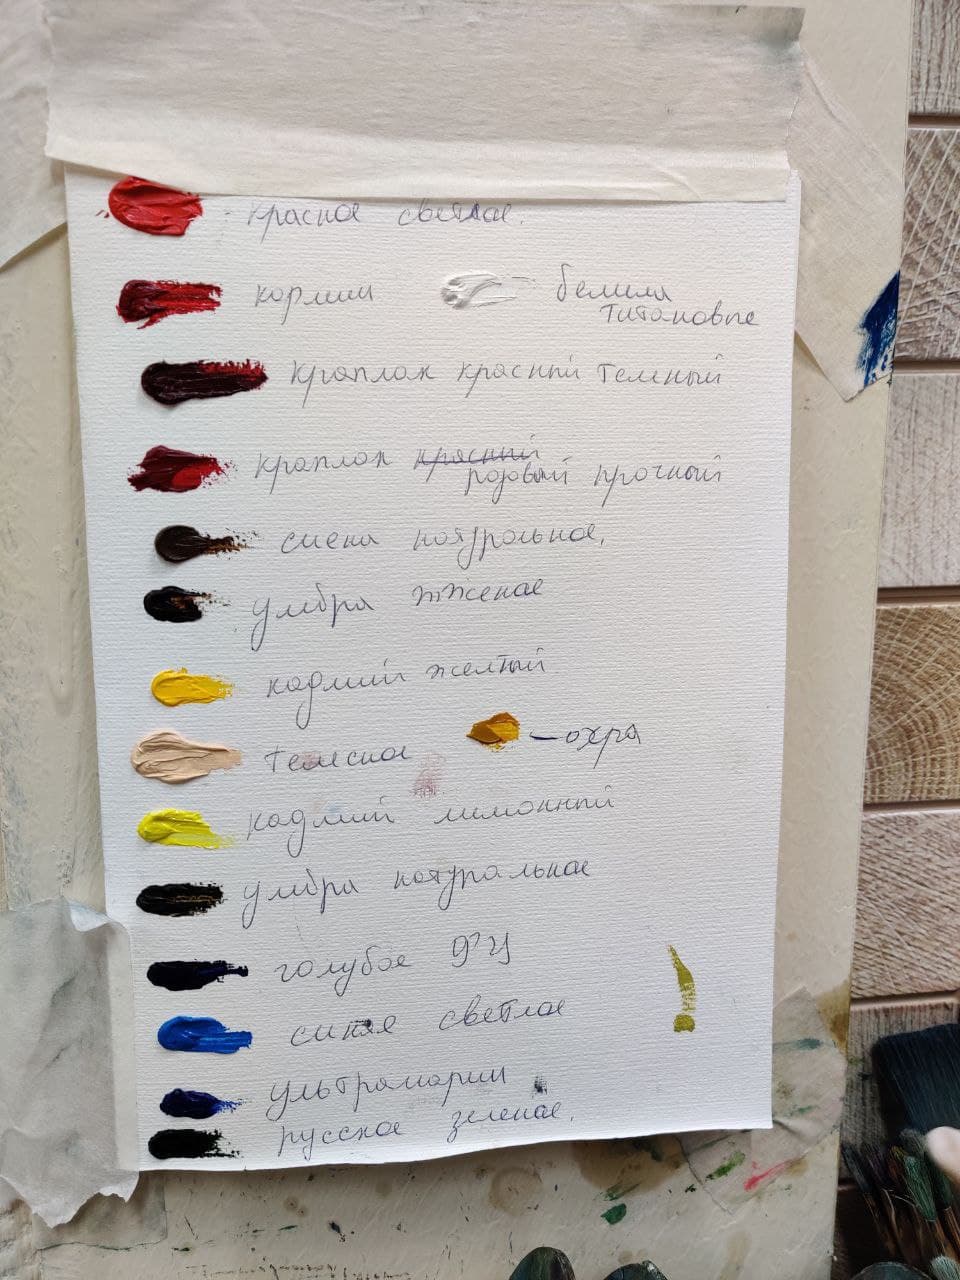 - красная светлая.
кармин
- белила
титановые
краплак красный темный
краплак красный
розовый прочный
сиена натуральная.
умбра жженая
кадмий желтый
телесная
- охра
кадмий лимонный
умбра натуральная
голубая ФЦ
синяя светлая
ультрамарин
русская зеленая.